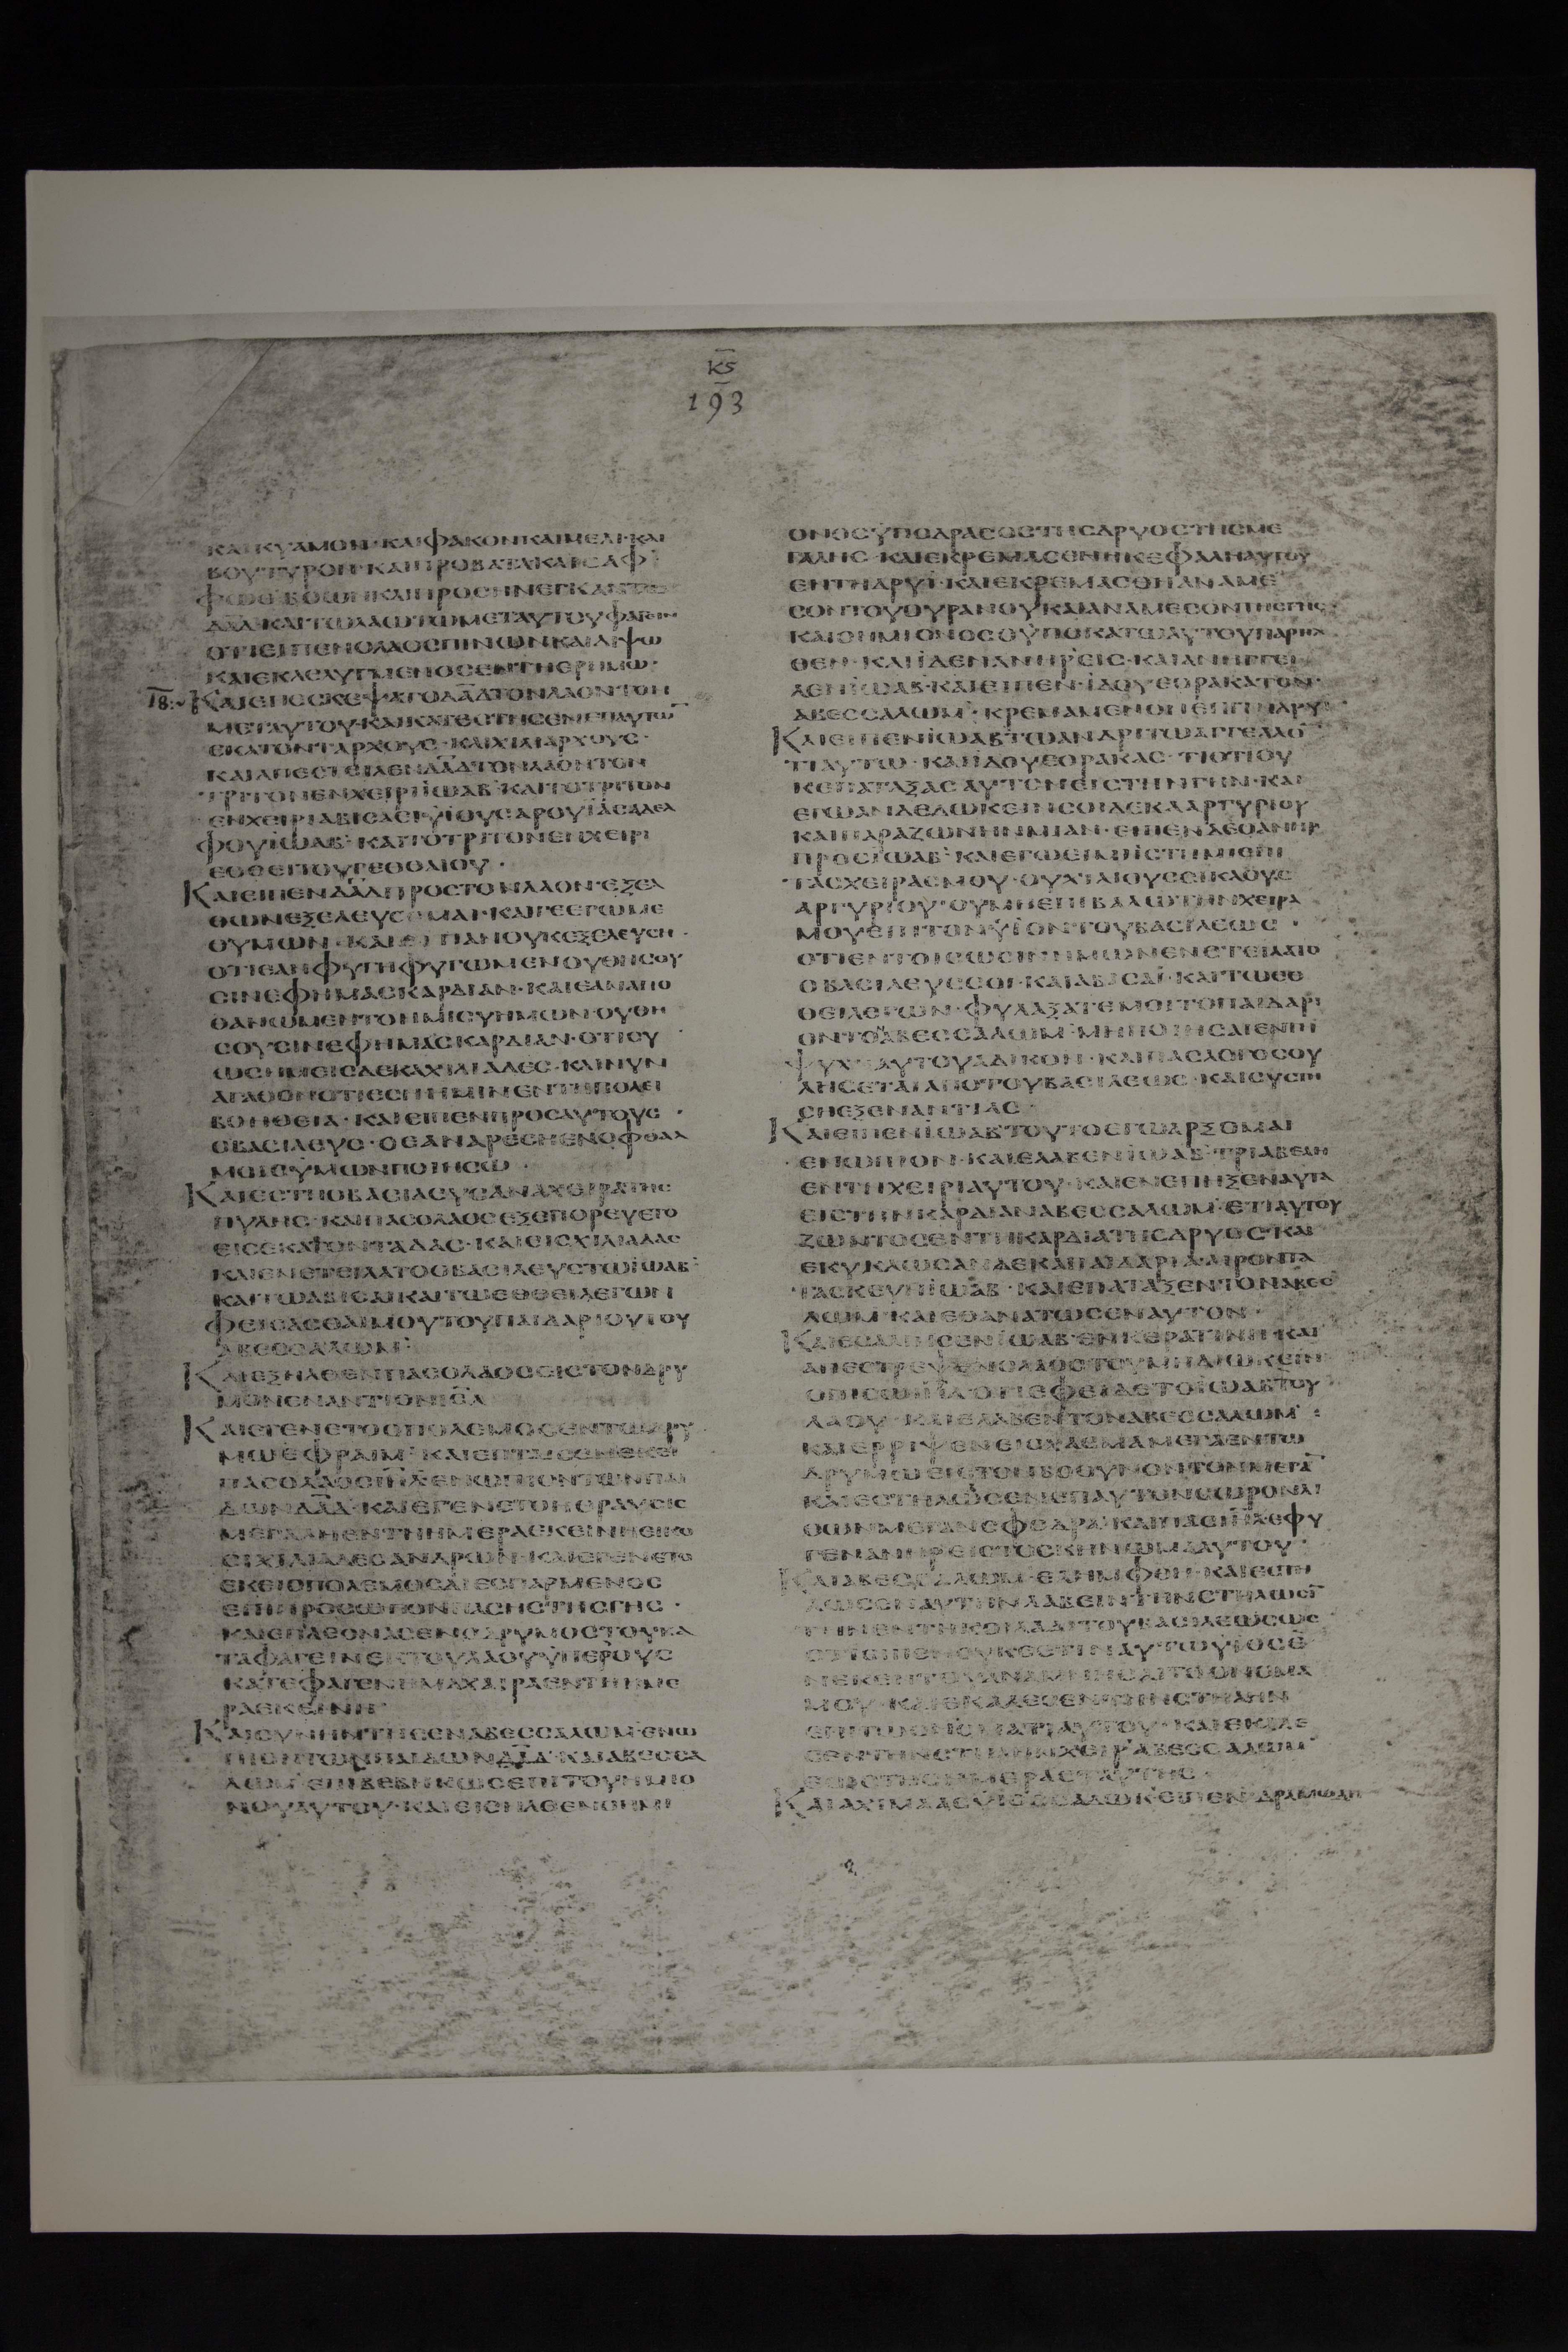 ΚϚ
193
ΚΑΙΚΥΑΜΟΝ·ΚΑΙΦΑΚΟΝΚΑΙΜΕΛΙ·ΚΑΙ
ΒΟΥΤΥΡΟΝ·ΚΑΙΠΡΟΒΑΤΑΚΑΙΣΑΦ
ΦΩΘΒΟΩΝΚΑΙΠΡΟΣΗΝΕΓΚΑΝΤΩ
ΔΑΔ·ΚΑΙΤΩΛΑΩΤΩΜΕΤΑΥΤΟΥΦΑΓΕΙΝ
ΟΤΙΕΙΠΕΝΟΛΑΟΣΠΙΝΩΝΚΑΙΔΙΨΩ
ΚΑΙΕΚΛΕΛΥΜΕΝΟΣΕΝΤΗΕΡΗΜΩ·
18:~ΚΑΙΕΠΕΣΚΕΨΑΤΟΔΑΔΤΟΝΛΑΟΝΤΟΝ
ΜΕΤΑΥΤΟΥ·ΚΑΙΚΑΤΕΣΤΗΣΕΝΕΠΑΥΤΩ
ΕΚΑΤΟΝΤΑΡΧΟΥΣ·ΚΑΙΧΙΛΙΑΡΧΟΥΣ·
ΚΑΙΑΠΕΣΤΕΙΛΕΝΔΑΔΤΟΝΛΑΟΝΤΟΝ
ΤΡΙΤΟΝΕΝΧΕΙΡΙΪΩΑΒ·ΚΑΙΤΟΤΡΙΤΟΝ
ΕΝΧΕΙΡΙΑΒΙΣΑΣΙΥΪΟΥΣΑΡΟΥΪΑΣΑΔΕΛ
ΦΟΥΪΩΑΒ·ΚΑΙΤΟΤΡΙΤΟΝΕΝΧΕΙΡΙ
ΕΘΘΕΙΤΟΥΓΕΘΘΑΙΟΥ·
ΚΑΙΕΙΠΕΝΔΑΔΠΡΟΣΤΟΝΛΑΟΝ·ΕΞΕΛ
ΘΩΝΕΞΕΛΕΥΣΟΜΑΙ·ΚΑΙΓΕΕΓΩΜΕ
ΘΥΜΩΝ·ΚΑΙΕΙΠΑΝΟΥΚΕΞΕΛΕΥΣΗ·
ΟΤΙΕΑΝΦΥΓΗΦΥΓΩΜΕΝΟΥΘΗΣΟΥ
ΣΙΝΕΦΗΜΑΣΚΑΡΔΙΑΝ·ΚΑΙΕΑΝΑΠΟ
ΘΑΝΩΜΕΝΤΟΗΜΙΣΥΗΜΩΝ·ΟΥΘΗ
ΣΟΥΣΙΝΕΦΗΜΑΣΚΑΡΔΙΑΝ·ΟΤΙΣΥ
ΩΣΗΜΕΙΣΔΕΚΑΧΙΛΙΑΔΕΣ·ΚΑΙΝΥΝ
ΑΓΑΘΟΝΟΤΙΕΣΗΗΜΙΝΕΝΤΗΠΟΛΕΙ
ΒΟΗΘΕΙΑ·ΚΑΙΕΙΠΕΝΠΡΟΣΑΥΤΟΥΣ·
ΟΒΑΣΙΛΕΥΣ·ΟΕΑΝΑΡΕΣΗΕΝΟΦΘΑΛ
ΜΟΙΣΥΜΩΝΠΟΙΗΣΩ·
ΚΑΙΕΣΤΗΟΒΑΣΙΛΕΥΣΑΝΑΧΕΙΡΑΤΗΣ
ΠΥΛΗΣ·ΚΑΙΠΑΣΟΛΑΟΣΕΞΕΠΟΡΕΥΕΤΟ
ΕΙΣΕΚΑΤΟΝΤΑΔΑΣ·ΚΑΙΕΙΣΧΙΛΙΑΔΑΣ
ΚΑΙΕΝΕΤΕΙΛΑΤΟΟΒΑΣΙΛΕΥΣΤΩΪΩΑΒ·
ΚΑΙΤΩΑΒΙΣΑΙΚΑΙΤΩΕΘΘΕΙΛΕΓΩΝ
ΦΕΙΣΑΣΘΑΙΜΟΥΤΟΥΠΑΙΔΑΡΙΟΥΤΟΥ
ΑΒΕΣΣΑΛΩΜ·
ΚΑΙΕΞΗΛΘΕΝΠΑΣΟΛΑΟΣΕΙΣΤΟΝΔΡΥ
ΜΟΝΕΝΑΝΤΙΟΝΙΣΛ
ΚΑΙΕΓΕΝΕΤΟΟΠΟΛΕΜΟΣΕΝΤΩΔΡΥ
ΜΩΕΦΡΑΙΜ·ΚΑΙΕΠΤΑΙΣΕΝΕΚΕΙ
ΠΑΣΟΛΑΟΣΙΗΛΕΝΩΠΙΟΝΤΩΝΠΑΙ
ΔΩΝΔΑΔ·ΚΑΙΕΓΕΝΕΤΟΗΘΡΑΥΣΙΣ
ΜΕΓΑΛΗΕΝΤΗΗΜΕΡΑΕΚΕΙΝΗΕΙΚΟ
ΣΙΧΙΛΙΑΔΕΣΑΝΔΡΩΝ·ΚΑΙΕΓΕΝΕΤΟ
ΕΚΕΙΟΠΟΛΕΜΟΣΔΙΕΣΠΑΡΜΕΝΟΣ
ΕΠΙΠΡΟΣΩΠΟΝΠΑΣΗΣΤΗΣΓΗΣ·
ΚΑΙΕΠΛΕΟΝΑΣΕΝΟΔΡΥΜΟΣΤΟΥΚΑ
ΤΑΦΑΓΕΙΝΕΚΤΟΥΛΑΟΥΥΠΕΡΟΥΣ
ΚΑΤΕΦΑΓΕΝΗΜΑΧΑΙΡΑΕΝΤΗΗΜΕ
ΡΑΕΚΕΙΝΗ·
ΚΑΙΣΥΝΗΝΤΗΣΕΝΑΒΕΣΣΑΛΩΜ·ΕΝΩ
ΠΙΟΝΤΩΝΠΑΙΔΩΝΔΑΔ·ΚΑΙΑΒΕΣΣΑ
ΛΩΜ·ΕΠΙΒΕΒΗΚΩΣΕΠΙΤΟΥΗΜΙΟ
ΝΟΥΑΥΤΟΥ·ΚΑΙΕΙΣΗΛΘΕΝΟΗΜΙ
ΟΝΟΣΫΠΟΔΑΣΟΣΤΗΣΔΡΥΟΣΤΗΣΜΕ
ΓΑΛΗΣ·ΚΑΙΕΚΡΕΜΑΣΘΗΗΚΕΦΑΛΗΑΥΤΟΥ
ΕΝΤΗΔΡΥΪ·ΚΑΙΕΚΡΕΜΑΣΘΗΑΝΑΜΕ
ΣΟΝΤΟΥΟΥΡΑΝΟΥΚΑΙΑΝΑΜΕΣΟΝΤΗΣΓΗΣ·
ΚΑΙΟΗΜΙΟΝΟΣΟΥΠΟΚΑΤΩΑΥΤΟΥΠΑΡΗΛ
ΘΕΝ·ΚΑΙΪΔΕΝΑΝΗΡΕΙΣ·ΚΑΙΑΝΗΓΓΕΙ
ΛΕΝΪΩΑΒ·ΚΑΙΕΙΠΕΝ·ΪΔΟΥΕΟΡΑΚΑΤΟΝ·
ΑΒΕΣΣΑΛΩΜ·ΚΡΕΜΑΜΕΝΟΝΕΝΤΗΔΡΥΪ
ΚΑΙΕΙΠΕΝΪΩΑΒΤΩΑΝΔΡΙΤΩΑΓΓΕΛΛΟ
ΤΙΑΥΤΩ·ΚΑΙΪΔΟΥΕΟΡΑΚΑΣ·ΤΙΟΤΙΟΥ
ΚΕΠΑΤΑΞΑΣΑΥΤΟΝΕΙΣΤΗΝΓΗΝ·ΚΑΙ
ΕΓΩΑΝΔΕΔΩΚΕΙΝΣΟΙΔΕΚΑΑΡΓΥΡΙΟΥ
ΚΑΙΠΑΡΑΖΩΝΗΝΜΙΑΝ·ΕΙΠΕΝΔΕΟΑΝΗΡ
ΠΡΟΣΪΩΑΒ·ΚΑΙΕΓΩΕΙΜΙΪΣΤΗΜΙΕΠΙ
ΤΑΣΧΕΙΡΑΣΜΟΥ·ΟΥΧΙΛΙΟΥΣΣΙΚΛΟΥΣ
ΑΡΓΥΡΙΟΥ·ΟΥΜΗΕΠΙΒΑΛΩΤΗΝΧΕΙΡΑ
ΜΟΥΕΠΙΤΟΝΥΪΟΝΤΟΥΒΑΣΙΛΕΩΣ·
ΟΤΙΕΝΤΟΙΣΩΣΙΝΗΜΩΝΕΝΕΤΕΙΛΑΤΟ
ΟΒΑΣΙΛΕΥΣΣΟΙ·ΚΑΙΑΒΙΣΑΪ·ΚΑΙΤΩΕΘ
ΘΕΙΛΕΓΩΝ·ΦΥΛΑΞΑΤΕΜΟΙΤΟΠΑΙΔΑΡΙ
ΟΝΤΟΑΒΕΣΣΑΛΩΜ·ΜΗΠΟΙΗΣΑΙΕΝΤΗ
ΨΥΧΗΑΥΤΟΥΑΔΙΚΟΝ·ΚΑΙΠΑΣΛΟΓΟΣΟΥ
ΛΗΣΕΤΑΙΑΠΟΤΟΥΒΑΣΙΛΕΩΣ·ΚΑΙΣΥΣΤΗ
ΣΗΕΞΕΝΑΝΤΙΑΣ·
ΚΑΙΕΙΠΕΝΪΩΑΒΤΟΥΤΟΕΓΩΑΡΞΟΜΑΙ
ΕΝΩΠΙΟΝ·ΚΑΙΕΛΑΒΕΝΪΩΑΒ·ΤΡΙΑΒΕΛΗ
ΕΝΤΗΧΕΙΡΙΑΥΤΟΥ·ΚΑΙΕΝΕΠΗΞΕΝΑΥΤΑ
ΕΙΣΤΗΝΚΑΡΔΙΑΝΑΒΕΣΣΑΛΩΜ·ΕΤΙΑΥΤΟΥ
ΖΩΝΤΟΣΕΝΤΗΚΑΡΔΙΑΤΗΣΔΡΥΟΣ·ΚΑΙ
ΕΚΥΚΛΩΣΑΝΔΕΚΑΠΑΙΔΑΡΙΑΑΙΡΟΝΤΑ
ΤΑΣΚΕΥΗΪΩΑΒ·ΚΑΙΕΠΑΤΑΞΕΝΤΟΝΑΒΕΣ
ΛΩΜ·ΚΑΙΕΘΑΝΑΤΩΣΕΝΑΥΤΟΝ·
ΚΑΙΕΣΑΛΠΙΣΕΝΪΩΑΒ·ΕΝΚΕΡΑΤΙΝΗ·ΚΑΙ
ΑΠΕΣΤΡΕΨΕΝΟΛΑΟΣΤΟΥΜΗΔΙΩΚΕΙΝ
ΟΠΙΣΩΙΗΛ·ΟΤΙΕΦΕΙΔΕΤΟΪΩΑΒΤΟΥ
ΛΑΟΥ·ΚΑΙΕΛΑΒΕΝΤΟΝΑΒΕΣΣΑΛΩΜ·
ΚΑΙΕΡΡΙΨΕΝΕΙΣΧΑΣΜΑΜΕΓΑΕΝΤΩ
ΔΡΥΜΩΕΙΣΤΟΝΒΟΘΥΝΟΝΤΟΝΜΕΓΑ
ΚΑΙΕΣΤΗΛΩΣΕΝΕΠΑΥΤΟΝΣΩΡΟΝΛΙ
ΘΩΝΜΕΓΑΝΣΦΟΔΡΑ·ΚΑΙΠΑΣΙΗΛΕΦΥ
ΓΕΝΑΝΗΡΕΙΣΤΟΣΚΗΝΩΜΑΑΥΤΟΥ·
ΚΑΙΑΒΕΣΣΑΛΩΜ·ΕΛΗΜΦΘΗ·ΚΑΙΕΣΤΗ
ΛΩΣΕΝΑΥΤΗΝΛΑΒΕΙΝΤΗΝΣΤΗΛΩΣΙ
ΤΗΝΕΝΤΗΚΟΙΛΑΔΙΤΟΥΒΑΣΙΛΕΩΣΩΣ
ΟΤΙΕΙΠΕΝΟΥΚΕΣΤΙΝΑΥΤΩΥΪΟΣΕ
ΝΕΚΕΝΤΟΥΑΝΑΜΝΗΣΑΙΤΟΟΝΟΜΑ
ΜΟΥ·ΚΑΙΕΚΑΛΕΣΕΝΤΗΝΣΤΗΛΗΝ
ΕΠΙΤΩΟΝΟΜΑΤΙΑΥΤΟΥ·ΚΑΙΕΚΑΛΕ
ΣΕΝΤΗΝΣΤΗΛΗΝΧΕΙΡΑΒΕΣΣΑΛΩΜ
ΕΩΣΤΗΣΗΜΕΡΑΣΤΑΥΤΗΣ·
ΚΑΙΑΧΙΜΑΑΣΥΪΟΣΣΑΔΩΚΕΙΠΕΝ·ΔΡΑΜΩΔΗ